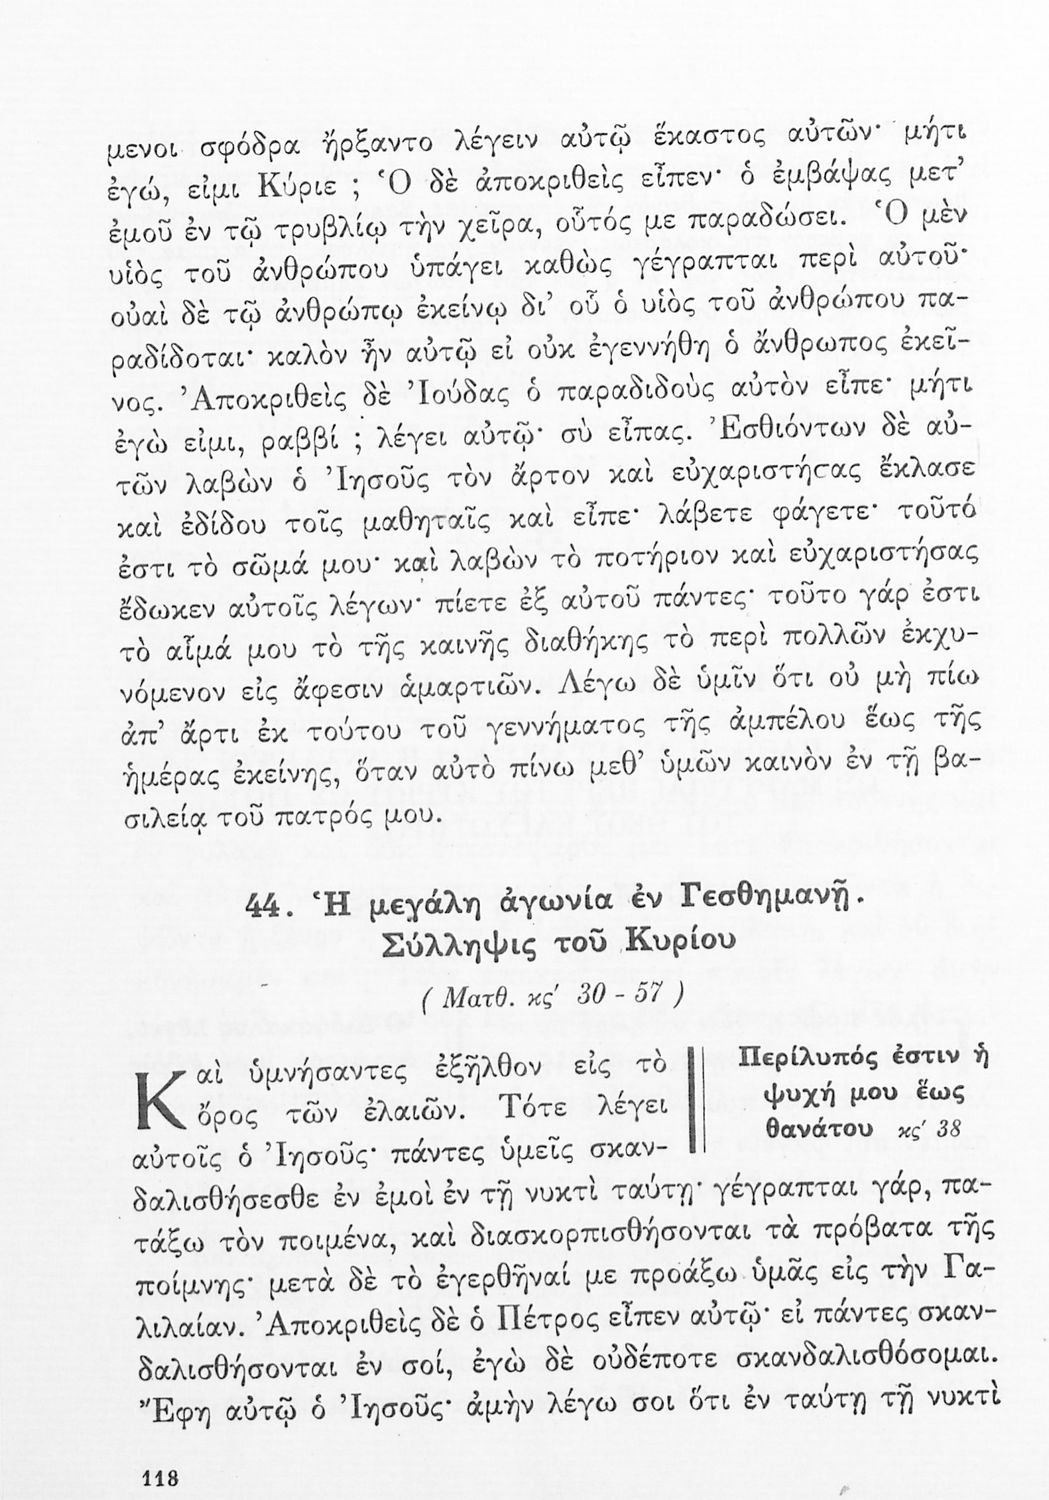 μενοι σφόδρα ἤρξαντο λέγειν αὐτῷ ἕκαστος αὐτῶν· μήτι
ἐγώ, εἰμι Κύριε ; Ὁ δὲ ἀποκριθεὶς εἶπεν· ὁ ἐμβάψας μετ’
ἐμοῦ ἐν τῷ τρυβλίῳ τὴν χεῖρα, οὗτός με παραδώσει. Ὁ μὲν
υἱὸς τοῦ ἀνθρώπου ὑπάγει καθὼς γέγραπται περὶ αὐτοῦ·
οὐαὶ δὲ τῷ ἀνθρώπῳ ἐκείνῳ δι’ οὗ ὁ υἱὸς τοῦ ἀνθρώπου πα-
ραδίδοται· καλὸν ἦν αὐτῷ εἰ οὐκ ἐγεννήθη ὁ ἄνθρωπος ἐκεῖ-
νος. Ἀποκριθεὶς δὲ Ἰούδας ὁ παραδιδοὺς αὐτὸν εἶπε· μήτι
ἐγὼ εἰμι, ραββί ; λέγει αὐτῷ· σὺ εἶπας. Ἐσθιόντων δὲ αὐ-
τῶν λαβὼν ὁ Ἰησοῦς τὸν ἄρτον καὶ εὐχαριστήσας ἔκλασε
καὶ ἐδίδου τοῖς μαθηταῖς καὶ εἶπε· λάβετε φάγετε· τοῦτό
ἐστι τὸ σῶμά μου· καὶ λαβὼν τὸ ποτήριον καὶ εὐχαριστήσας
ἔδωκεν αὐτοῖς λέγων· πίετε ἐξ αὐτοῦ πάντες· τοῦτο γάρ ἐστι
τὸ αἷμά μου τὸ τῆς καινῆς διαθήκης τὸ περὶ πολλῶν ἐκχυ-
νόμενον εἰς ἄφεσιν ἁμαρτιῶν. Λέγω δὲ ὑμῖν ὅτι οὐ μὴ πίω
ἀπ’ ἄρτι ἐκ τούτου τοῦ γεννήματος τῆς ἀμπέλου ἕως τῆς
ἡμέρας ἐκείνης, ὅταν αὐτὸ πίνω μεθ’ ὑμῶν καινὸν ἐν τῇ βα-
σιλείᾳ τοῦ πατρός μου.
44. Ἡ μεγάλη ἀγωνία ἐν Γεσθημανῇ.
Σύλληψις τοῦ Κυρίου
( Ματθ. κς′ 30 - 57 )
Καὶ ὑμνήσαντες ἐξῆλθον εἰς τὸ
ὄρος τῶν ἐλαιῶν. Τότε λέγει
αὐτοῖς ὁ Ἰησοῦς· πάντες ὑμεῖς σκαν-
Περίλυπός ἐστιν ἡ
ψυχή μου ἕως
θανάτου κς′ 38
δαλισθήσεσθε ἐν ἐμοὶ ἐν τῇ νυκτὶ ταύτῃ· γέγραπται γάρ, πα-
τάξω τὸν ποιμένα, καὶ διασκορπισθήσονται τὰ πρόβατα τῆς
ποίμνης· μετὰ δὲ τὸ ἐγερθῆναί με προάξω ὑμᾶς εἰς τὴν Γα-
λιλαίαν. Ἀποκριθεὶς δὲ ὁ Πέτρος εἶπεν αὐτῷ· εἰ πάντες σκαν-
δαλισθήσονται ἐν σοί, ἐγὼ δὲ οὐδέποτε σκανδαλισθόσομαι.
Ἔφη αὐτῷ ὁ Ἰησοῦς· ἀμὴν λέγω σοι ὅτι ἐν ταύτῃ τῇ νυκτὶ
118